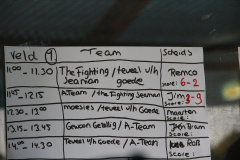 Veld 1 Team Scheids
11:00 - 11.30 The fighting / teusel v/h Remco
seaman goede score: 6-2
11:45 - 12.15 A-Team / the fighting seaman Jim
score: 3-9
12.30 - 13.00 moesjes / teusel v/h Goede maarten
score:
13.15 - 13.45 Gewoon Gezellig / A-Team
score:
14.00 - 14.30 Teusel v/h Goede / A-Team Rob
score: